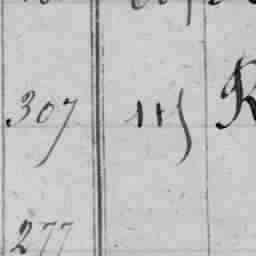 307 115 R
277